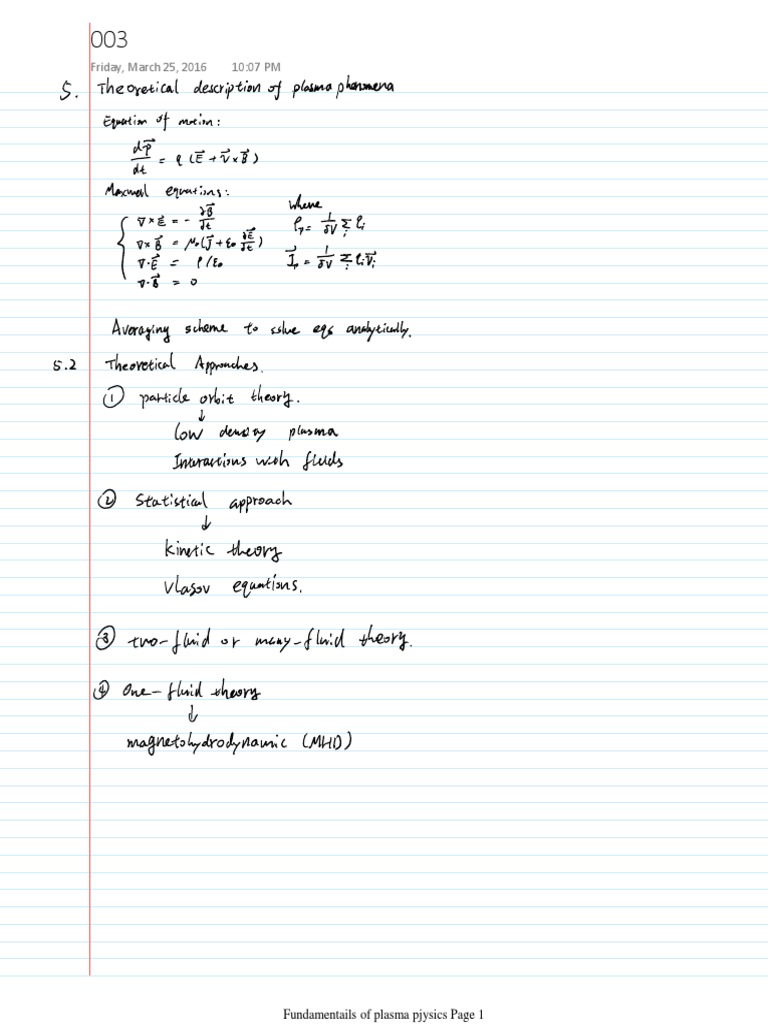 003
Friday, March 25, 2016 10:07 PM
5. Theoretical description of plasma phenomena
Equation of motion:
dp⃗/dt = q (E⃗ + v⃗ × B⃗)
Maxwell equations: where
∇ × E⃗ = - ∂B⃗/∂t ρp = 1/δV Σi qi
∇ × B⃗ = μ0 (J⃗ + ε0 ∂E⃗/∂t)
∇ · E⃗ = ρ/ε0 J⃗p = 1/δV Σi qi v⃗i
∇ · B⃗ = 0
Averaging scheme to solve eqs analytically.
5.2 Theoretical Approaches.
① particle orbit theory.
↓
low density plasma
Interactions with fluids
② Statistical approach
↓
kinetic theory
Vlasov equations.
③ two-fluid or many-fluid theory.
④ One-fluid theory
↓
magnetohydrodynamic (MHD)
Fundamentails of plasma pjysics Page 1